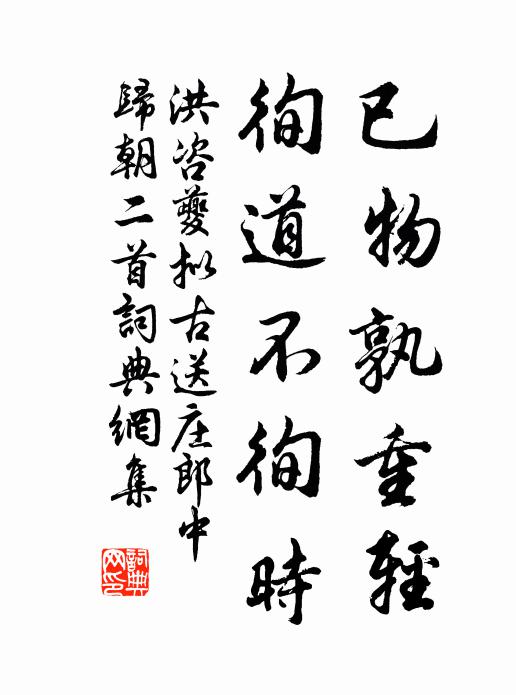 已物孰重輕
徇道不徇時
洪咨夔拟古送庄郎中
歸朝二首詞典網集
詞典网印